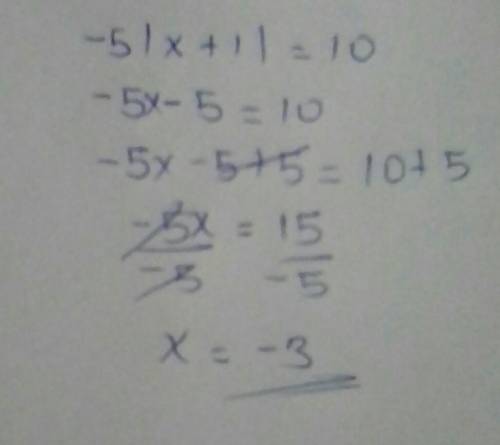 -5|x+1| = 10
-5x-5 = 10
-5x -5+5 = 10+5
-5x = 15
-5 -5
x = -3